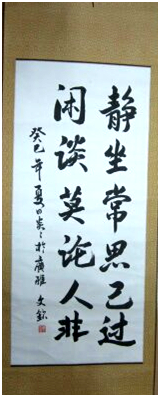 静坐常思己过
闲谈莫论人非
癸巳年夏日炎々於廣雅 文錦